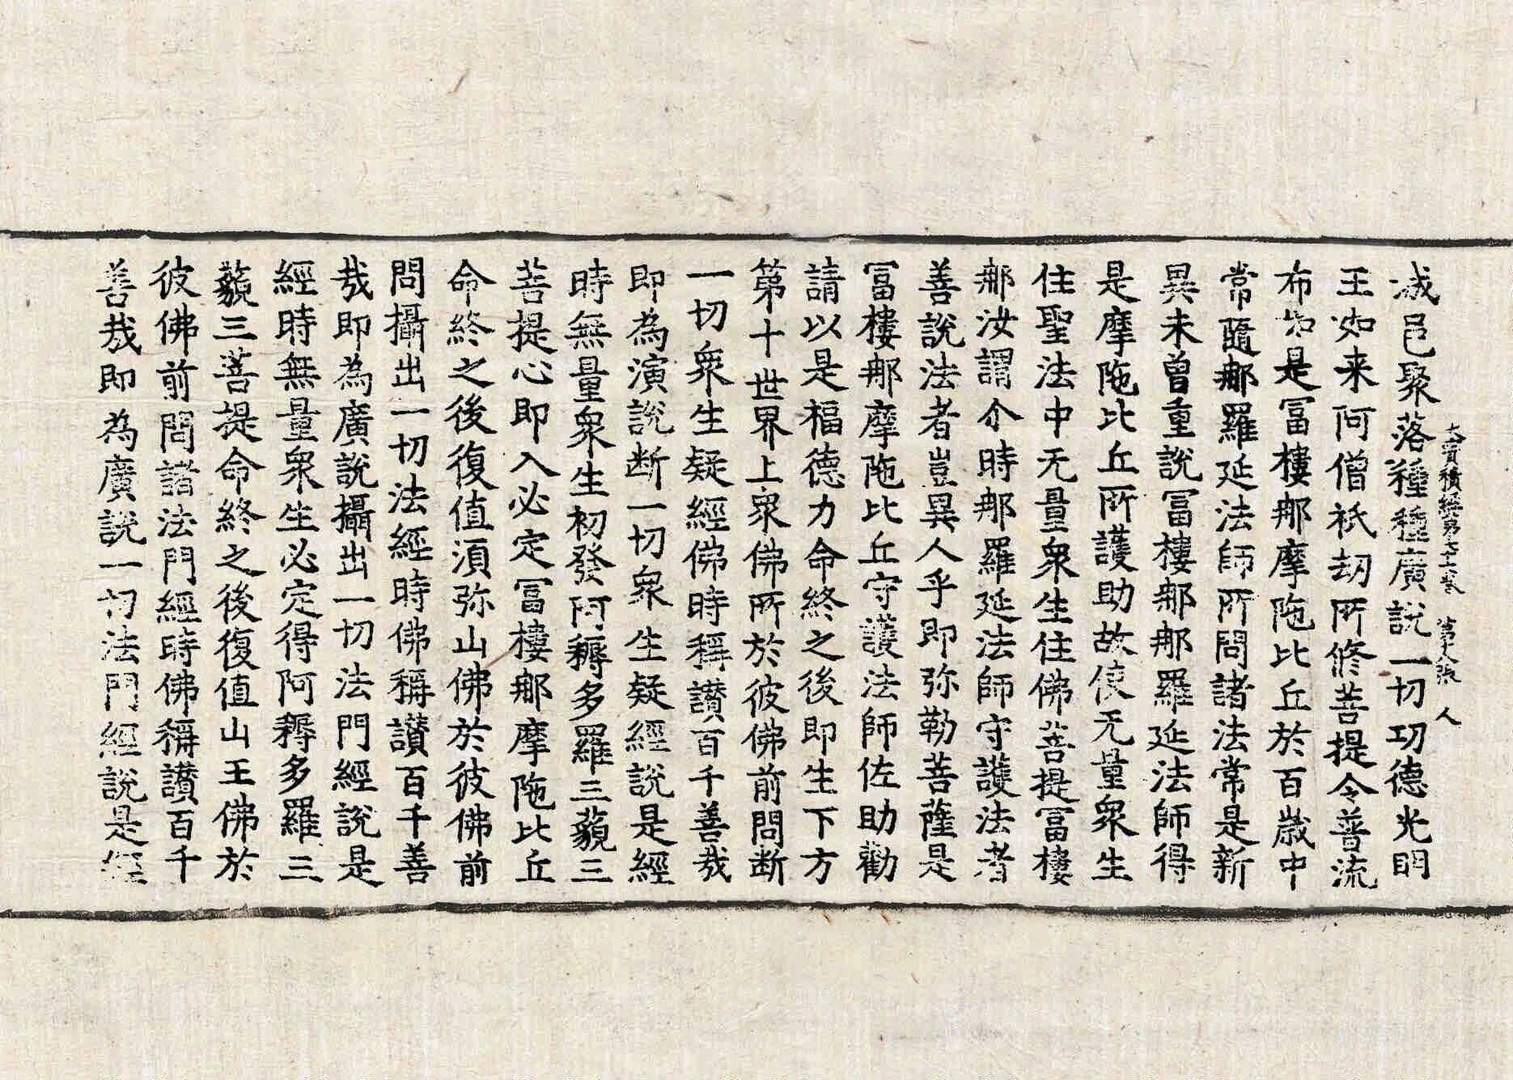 大寶積經第七十七卷 第十八張 人
城邑聚落種種廣說一切功德光明
王如来阿僧祇劫所修菩提令普流
布如是冨樓那摩陁比丘於百歲中
常隨那羅延法師所問諸法常是新
異未曽重說冨樓那那羅延法師得
是摩陁比丘所護助故使无量衆生
住聖法中无量衆生住佛菩提冨樓
那汝謂尒時那羅延法師守護法者
善說法者豈異人乎即弥勒菩薩是
冨樓那摩陁比丘守護法師佐助勸
請以是福德力命終之後即生下方
第十世界上衆佛所於彼佛前問断
一切衆生疑經佛時稱讃百千善㢤
即為演說断一切衆生疑經說是經
時無量衆生初發阿耨多羅三藐三
菩提心即入必定冨樓那摩陁比丘
命終之後復值湏弥山佛於彼佛前
問攝出一切法經時佛稱讃百千善
㢤即為廣說攝出一切法門經說是
經時無量衆生必定得阿耨多羅三
藐三菩提命終之後復值山王佛於
彼佛前問諸法門經時佛稱讃百千
善㢤即為廣說一切法門經說是經